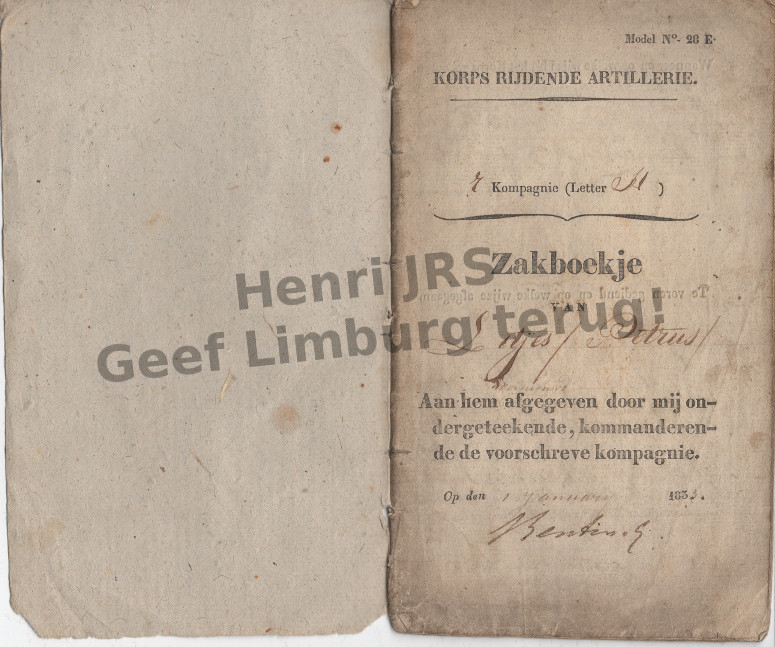 Model Nº. 28 E.
KORPS RIJDENDE ARTILLERIE.
Kompagnie (Letter )
Zakboekje
VAN
Petrus
Aan hem afgegeven door mij on-
dergeteekende, kommanderen-
de de voorschreve kompagnie.
Op den 1 Januari 1833.
Bentinck.
Henri JRS
Geef Limburg terug!